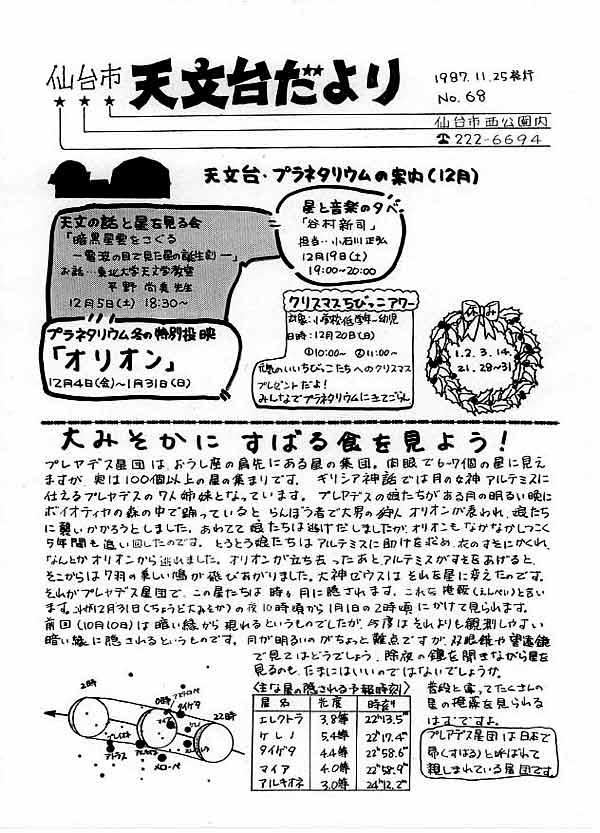 仙台市 天文台だより
1987.11.25発行
No.68
仙台市西公園内
☎222-6694
天文台・プラネタリウムの案内(12月)
天文の話と星を見る会
「暗黒星雲をさぐる
ー電波の目で見た星の誕生劇ー」
お話…東北大学天文学教室
平野 尚美 先生
12月5日(土) 18:30〜
星と音楽の夕べ
「谷村新司」
担当…小石川正弘
12月19日(土)
19:00〜20:00
プラネタリウム冬の特別投映
「オリオン」
12月4日(金)〜1月31日(日)
クリスマスちびっこアワー
対象:小学校低学年〜幼児
日時:12月20日(日)
①10:00〜 ②11:00〜
元気のいいちびっこたちへのクリスマス
プレゼントだよ!
みんなでプラネタリウムにきてごらん
休み
1.2.3.14.
21.28〜31
大みそかに すばる食を見よう!
プレヤデス星団は、おうし座の肩先にある星の集団。肉眼で6-7個の星に見え
ますが、実は100個以上の星の集まりです。ギリシア神話では月の女神アルテミスに
仕えるプレヤデスの7人姉妹となっています。プレヤデスの娘たちがある月の明るい晩に
ボイオティヤの森の中で踊っていると らんぼう者で大男の狩人オリオンが表われ、娘たち
に襲いかかろうとしました。あわてて娘たちは逃げだしましたが、オリオンもなかなかしつこく
5年間も追い回したのです。とうとう娘たちはアルテミスに助けを求め、衣のすそにかくれ、
なんとかオリオンから逃れました。オリオンが立ち去ったあと、アルテミスがすそをあげると、
そこからは7羽の美しい鳩が飛びあがりました。大神ゼウスはそれを星に変えたのです。
それがプレヤデス星団で、この星たちは時々月に隠されます。これを掩蔽(えんぺい)と言い
ます。12月31日(ちょうど大みそか)の夜10時頃から1月1日の2時頃にかけて見られます。
前回(10月10日)は暗い縁から現れるというものでしたが、今度はそれよりも観測しやすい
暗い縁に隠されるというものです。月が明るいのがちょっと難点ですが、双眼鏡や望遠鏡
で見てはどうでしょう。除夜の鐘を聞きながら星を
見るのも、たまにはいいのではないでしょうか。
〈主な星の隠される予報時刻〉
星名 光度 時刻
エレクトラ 3.8等 22ʰ13.5ᵐ
ケレノ 5.4等 22ʰ17.4ᵐ
タイゲタ 4.4等 22ʰ58.6ᵐ
マイア 4.0等 22ʰ58.9ᵐ
アルキオネ 3.0等 24ʰ12.2ᵐ
普段と違ってたくさんの
星の掩蔽を見られる
はずですよ。
プレアデス星団は日本で
昴(すばる)と呼ばれて
親しまれている星団です。
2時
0時
22時
アステロペ
タイゲタ
マイア
ケレノ
エレクトラ
アトラス
メローペ